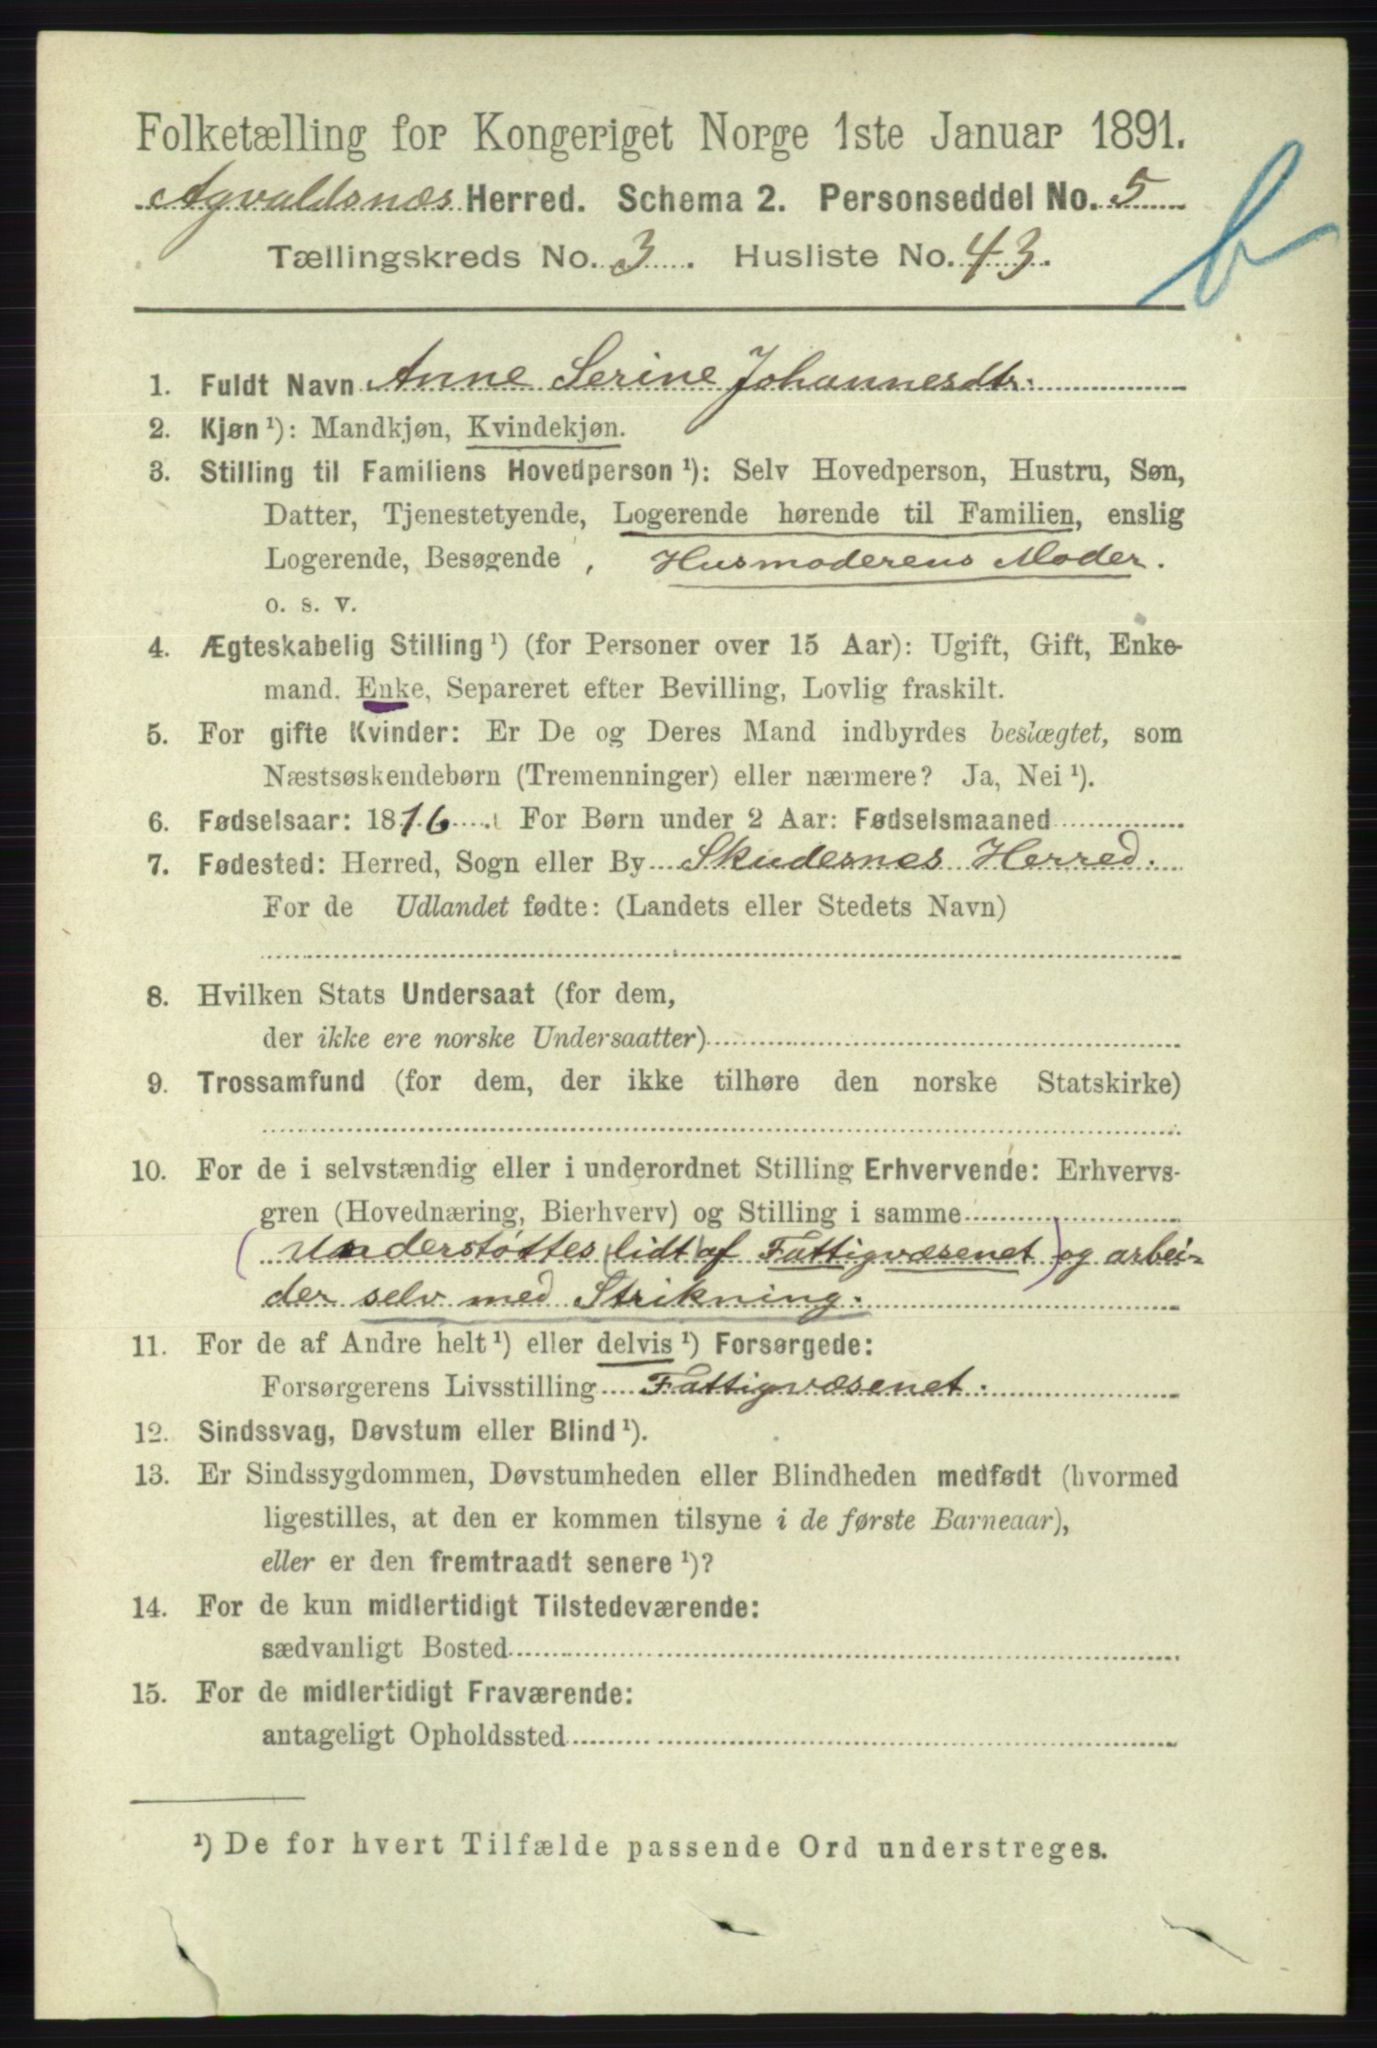 Folketælling for Kongeriget Norge 1ste Januar 1891.
Agvaldsnæs Herred. Schema 2. Personseddel No. 5
Tællingskreds No. 3. Husliste No. 43.
b
1. Fuldt Navn Anne Serine Johannesdtr.
2. Kjøn ¹): Mandkjøn, Kvindekjøn.
3. Stilling til Familiens Hovedperson ¹): Selv Hovedperson, Hustru, Søn,
Datter, Tjenestetyende, Logerende hørende til Familien, enslig
Logerende, Besøgende , Husmoderens Moder.
o. s. v.
4. Ægteskabelig Stilling ¹) (for Personer over 15 Aar): Ugift, Gift, Enke-
mand, Enke, Separeret efter Bevilling, Lovlig fraskilt.
5. For gifte Kvinder: Er De og Deres Mand indbyrdes beslægtet, som
Næstsøskendebørn (Tremenninger) eller nærmere? Ja, Nei ¹).
6. Fødselsaar: 1816. For Børn under 2 Aar: Fødselsmaaned
7. Fødested: Herred, Sogn eller By Skudesnes Herred.
For de Udlandet fødte: (Landets eller Stedets Navn)
8. Hvilken Stats Undersaat (for dem,
der ikke ere norske Undersaatter)
9. Trossamfund (for dem, der ikke tilhøre den norske Statskirke)
10. For de i selvstændig eller i underordnet Stilling Erhvervende: Erhvervs-
gren (Hovednæring, Bierhverv) og Stilling i samme
(Understøttes (lidt) af Fattigvæsenet) og arbei-
der selv med Strikning.
11. For de af Andre helt ¹) eller delvis ¹) Forsørgede:
Forsørgerens Livsstilling Fattigvæsenet.
12. Sindssvag, Døvstum eller Blind ¹).
13. Er Sindssygdommen, Døvstumheden eller Blindheden medfødt (hvormed
ligestilles, at den er kommen tilsyne i de første Barneaar),
eller er den fremtraadt senere ¹)?
14. For de kun midlertidigt Tilstedeværende:
sædvanligt Bosted
15. For de midlertidigt Fraværende:
antageligt Opholdssted
¹) De for hvert Tilfælde passende Ord understreges.